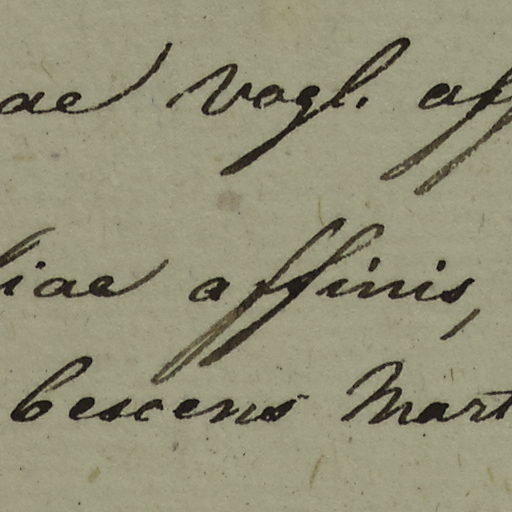 ae Vogl. aff
liae affinis,
bescens Mart